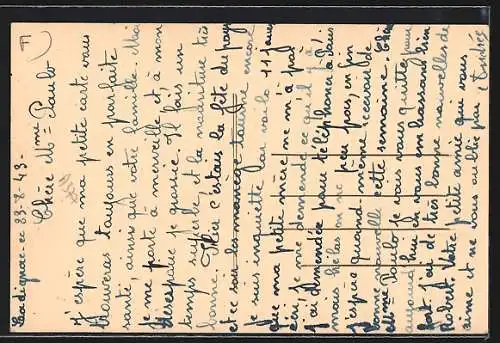 Ladignac le 23-8-43-
Chère Mme Paulo
J'espère que ma petite carte vous
trouveras toujours en parfaite
santé, ainsi que votre famille. Moi
je me porte à merveille et à mon
je grossie. Il fais un
temps superbe et la nourriture très
bonne. Hier c'étais la fête du pays
et ce soir les manèges tourne encore
Je suis inquiette car voila 11 jours
que ma petite mère ne m'a pas
écri, je me demande ce qu'il y à
J'ai demandée pour téléphoner à Paris
mais hélas on ne peu pas, en fin
j'espère quand-même recevoir de
bonne nouvelle cette semaine. Chère
Mme Paulo je vous vous quitte pour
aujourd'hui en vous embrassant bien
fort. J'ai de très bonne nouvelles de
Robert. Votre petite amie qui vous
aime et ne vous oublie pas
Andrée